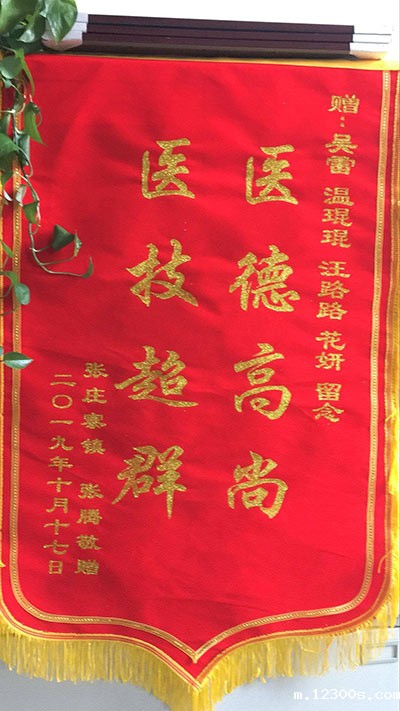 赠：吴雷 温琨琨 汪路路 花妍 留念
医德高尚
医技超群
张庄寨镇 张腾敬赠
二〇一九年十月十七日
m.12300s.com